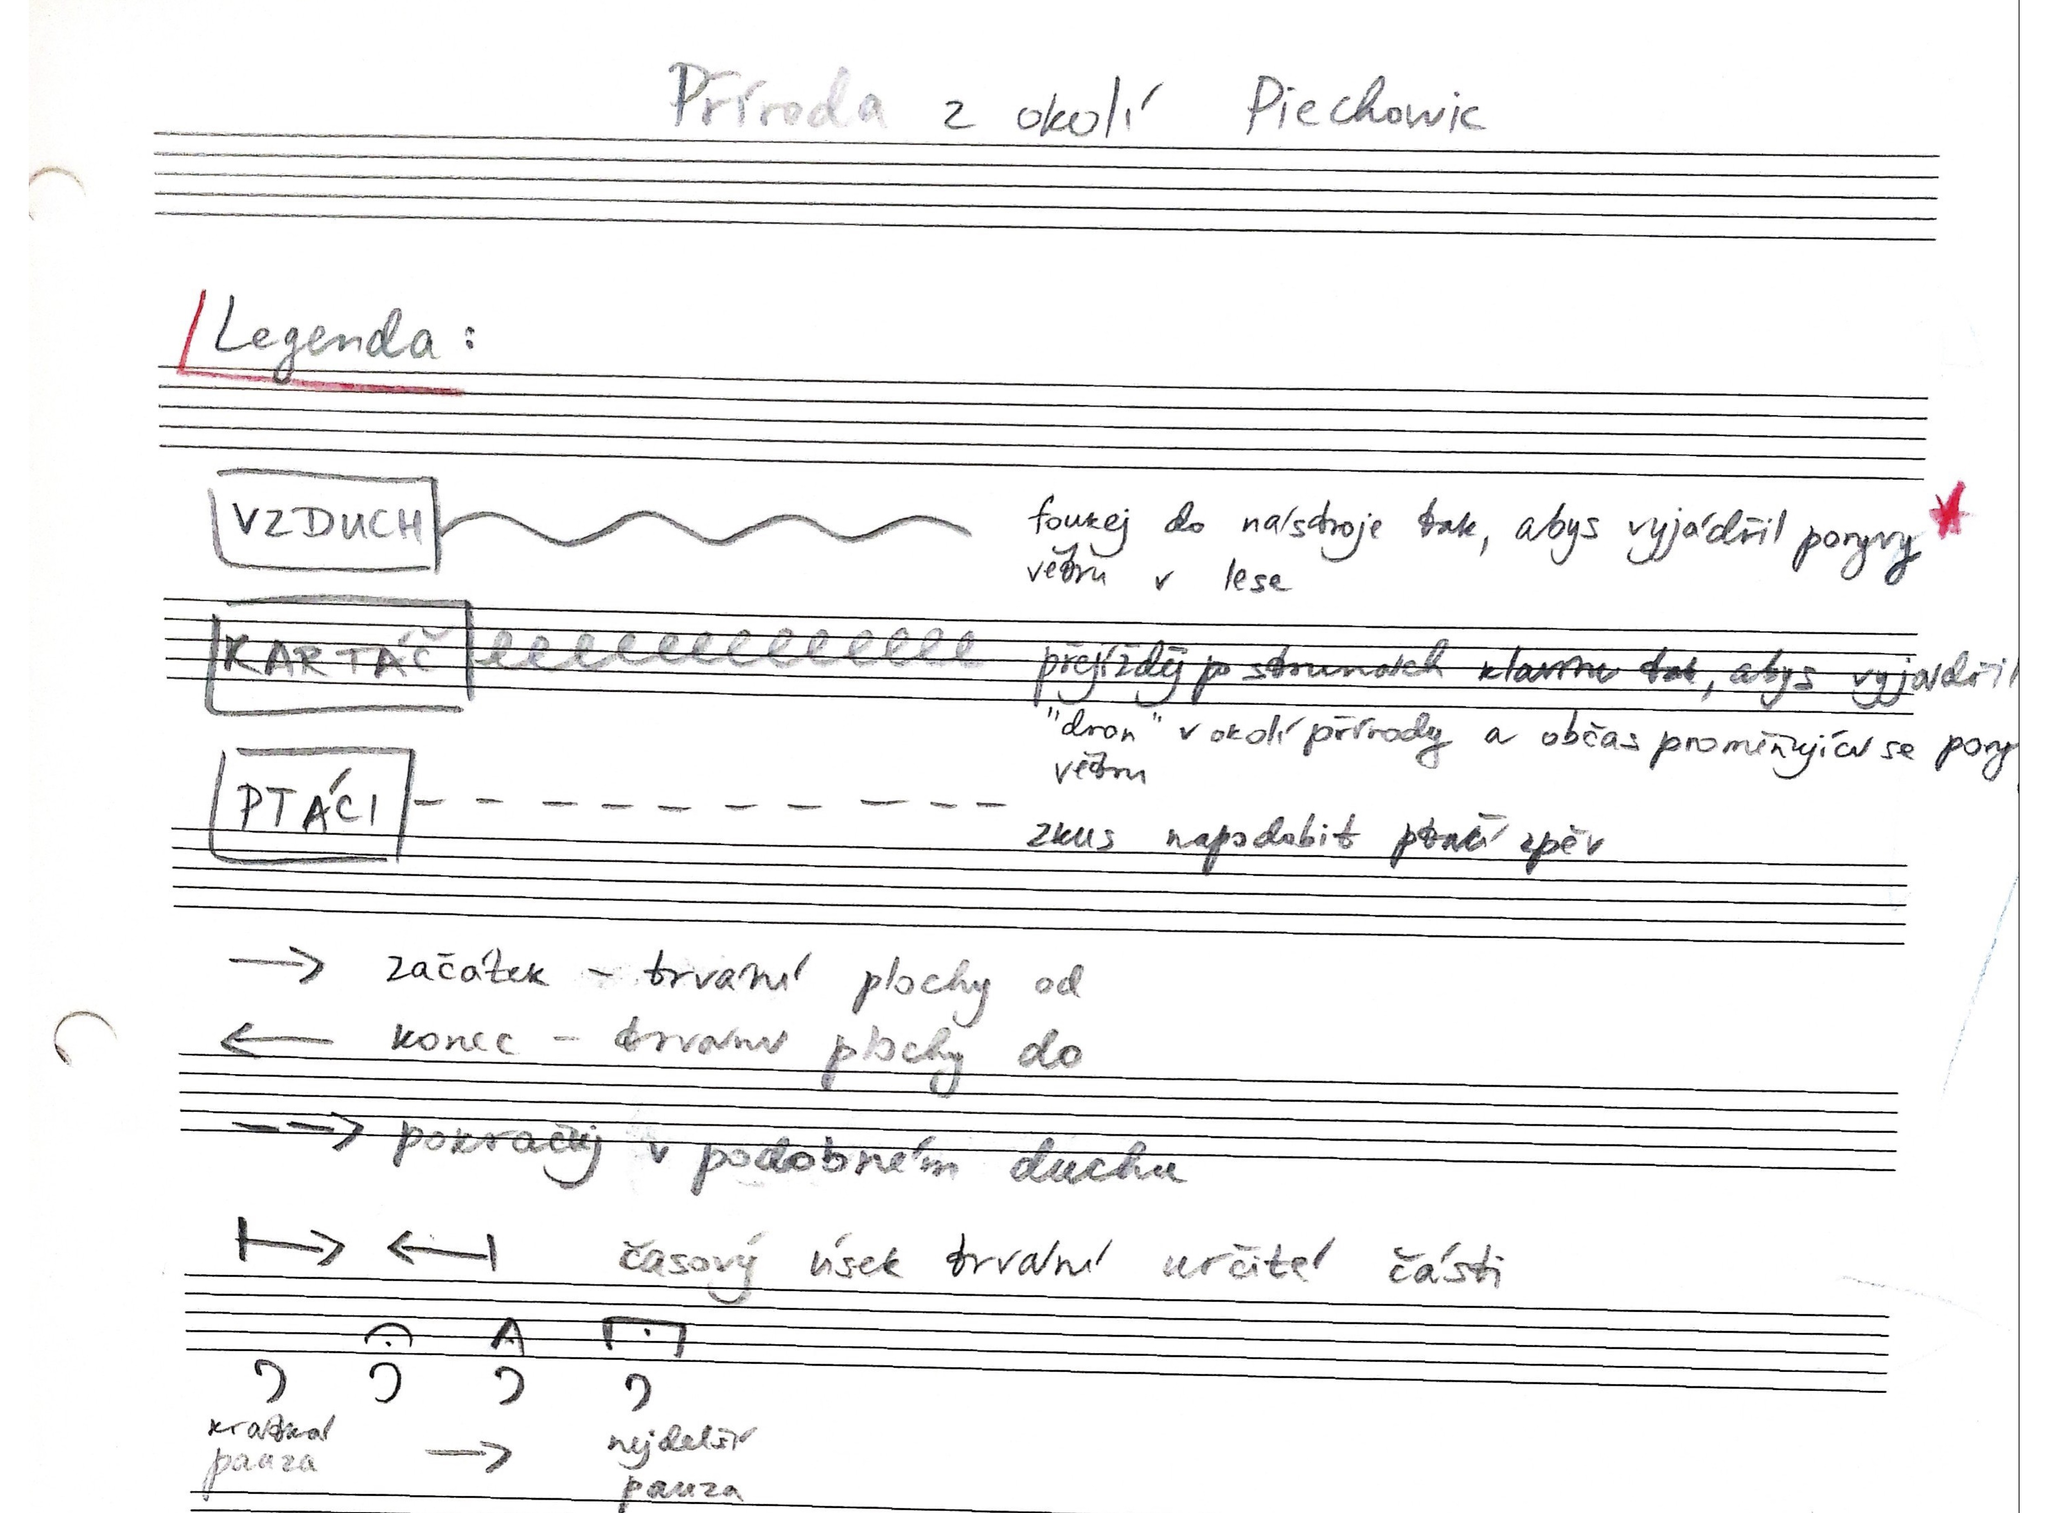 Příroda z okolí Piechowic
Legenda:
VZDUCH foukej do nástroje tak, abys vyjádřil poryvy
větru v lese
KARTÁČ přejížděj po strunách klavíru tak, abys vyjádřil
"dron" v okolí přírody a občas proměňující se pory
větru
PTÁCI
zkus napodobit ptačí zpěv
začátek - trvání plochy od
konec - trvání plochy do
pokračuj v podobném duchu
časový úsek trvání určité části
krátká nejdelší
pauza pauza